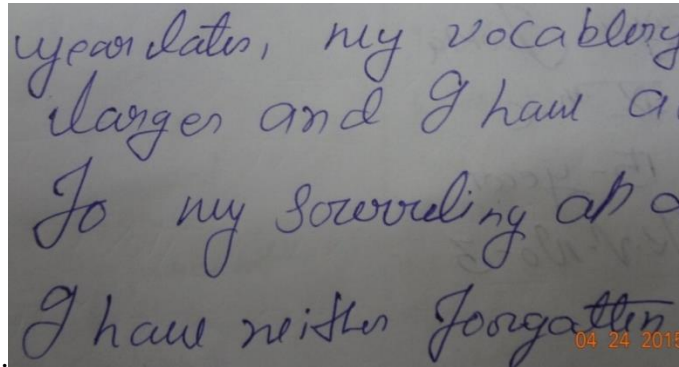 year later, my vocablery
larger and I have a
To my sorrouding as a
I have neither foorgatten
04 24 2015